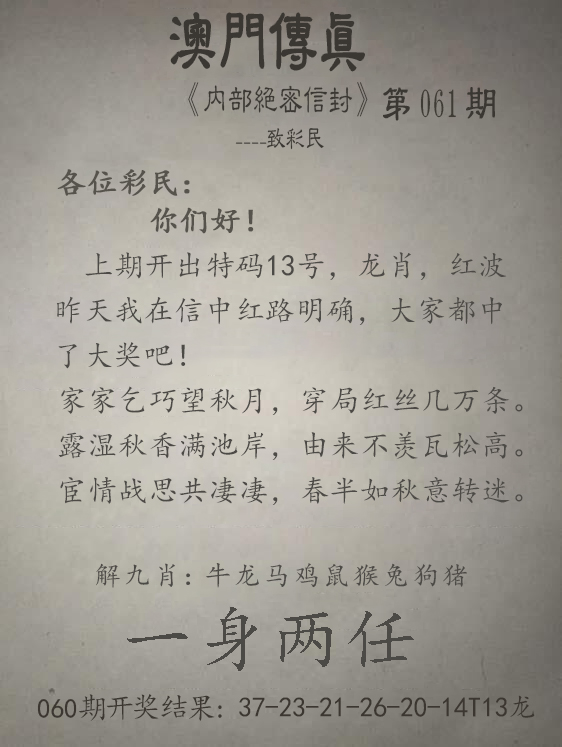 澳門傳眞
《内部絕密信封》第061期
----致彩民
各位彩民：
你们好！
上期开出特码13号，龙肖，红波
昨天我在信中红路明确，大家都中
了大奖吧！
家家乞巧望秋月，穿局红丝几万条。
露湿秋香满池岸，由来不羡瓦松高。
宦情战思共凄凄，春半如秋意转迷。
解九肖：牛龙马鸡鼠猴兔狗猪
一身两任
060期开奖结果：37-23-21-26-20-14T13龙